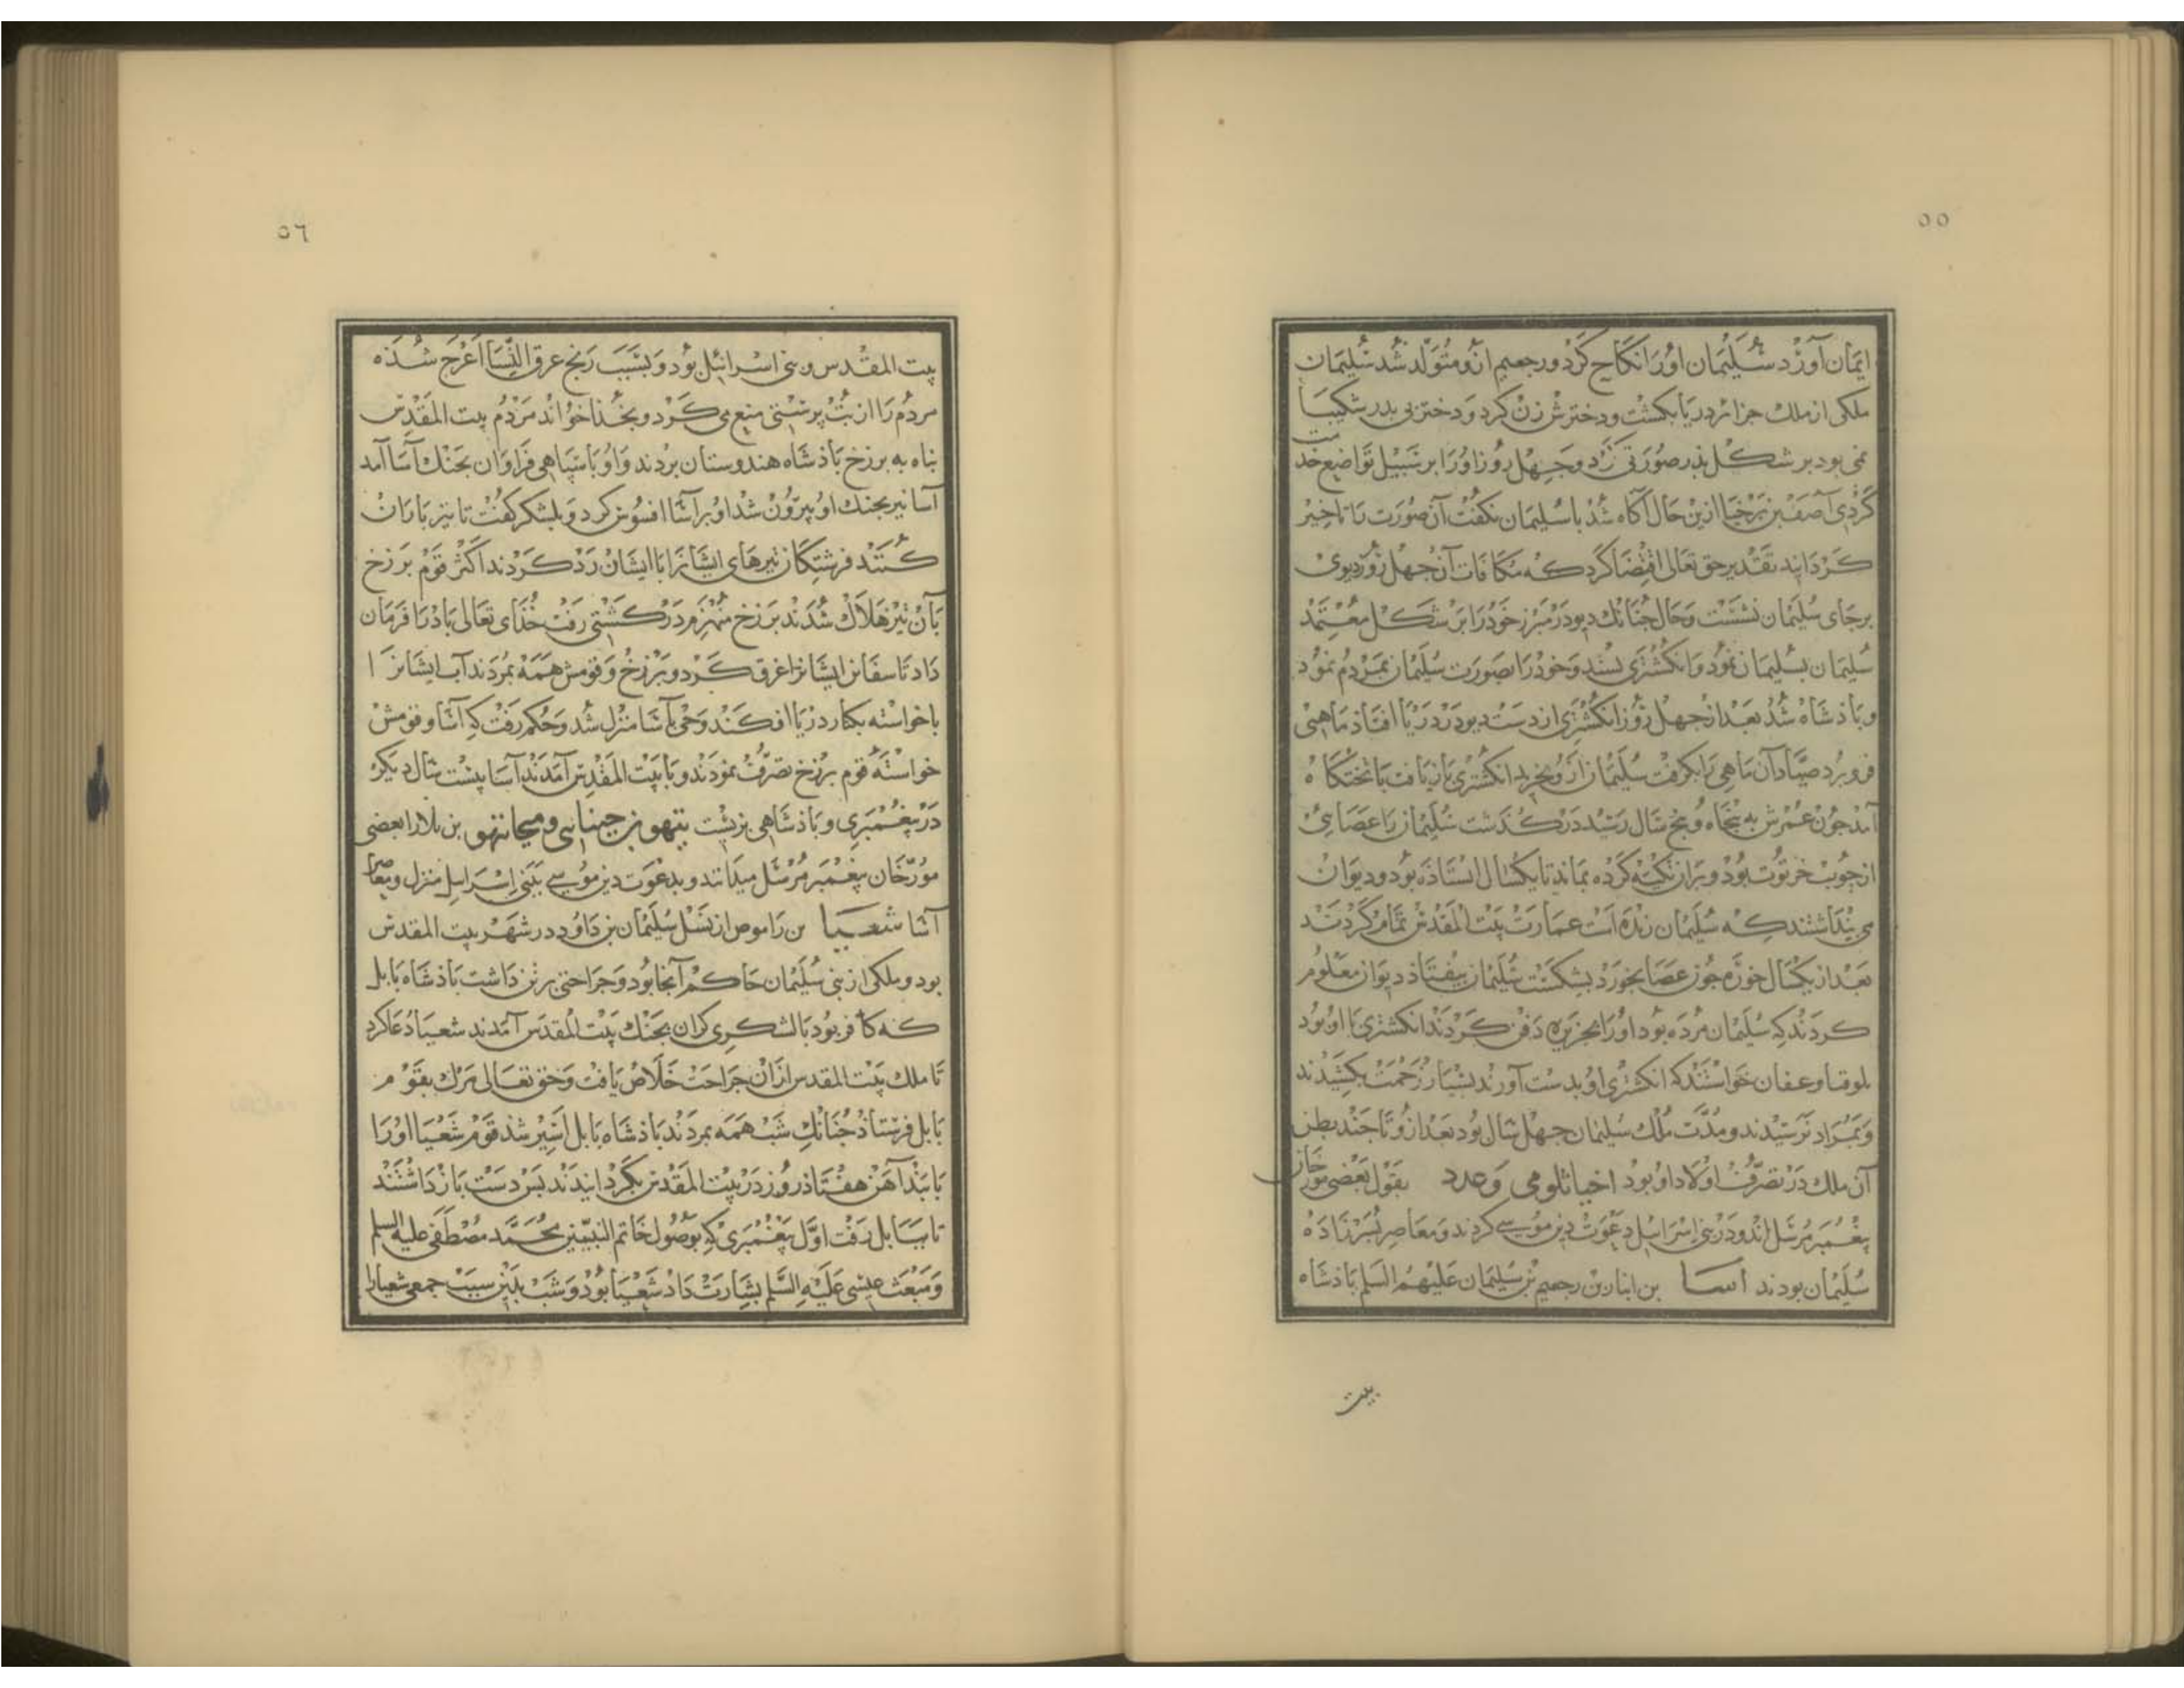 ٥٥
ایمان آورد سلیمان او را نکاح کرد و رجعیم ازو متولد شد سلیمان
ملکی از ملک جزائر دریا بکشت و دخترش زن کرد و دختر بی پدر شکیبا
نمی بود بر شکل پدر صورتی زد و چهل روز او را بر سبیل تواضع خدمت
کردی آصف بن برخیا ازین حال آکاه شد با سلیمان نکفت آن صورت را ناخیز
کردانید تقدیر حق تعالی اقتضا کرد که مکافات آن چهل روز دیوی
برجای سلیمان نشست و حال چنانک دیو در مبرز خود را بر شکل معتمد
سلیمان بسلیمان نمود و انکشتری بستد و خود را بصورت سلیمان بمردم نمود
و باذشاه شد بعد از چهل روز انکشتری از دست دیو در دریا افتاذ ماهیی
فرو برد صیاد آن ماهی را بکرفت سلیمان ازو بخرید انکشتری بازیافت با تختکاه
آمد جون عمرش به پنجاه و پنج سال رسید در کذشت سلیمان را عصائی
از جوب خرنوت بود و بران تکیه کرده بماند تا یکسال ایستاذه بود و دیوان
می پنداشتند که سلیمان زنده است عمارت بیت المقدس تمام کردند
بعد از یکسال خوره جون عصا بخورد بشکست سلیمان بیفتاذ دیوان معلوم
کردند که سلیمان مرده بود او را بجزیره دفن کردند انکشتری با او بود
بلوقیا و عفان خواستند که انکشتری او بدست آورند بسیار زحمت کشیدند
و بمراد نرسیدند و مدت ملک سلیمان جهل سال بود بعد ازو تا جند بطن
آن ملک در تصرف اولاد او بود اخیا ثلومی و عدد بقول بعضی مورخان
پیغمبر مرسل اند و در بنی اسرائیل دعوت دین موسی کردند و معاصر پسرزاده
سلیمان بودند اسا بن ابنا بن رجعیم بن سلیمان علیهم السلم باذشاه
بیت
٥٦
بیت المقدس و بنی اسرائیل بود و بسبب رنج عرق النسا اعرج شده
مردم را از بت پرستی منع می کرد و بخدا خواند مردم بیت المقدس
بناه به برزخ باذشاه هندوستان بردند و او با سپاهی فراوان بجنک آسا آمد
آسا نیز بجنک او بیرون شد او بر آسا افسوس کرد و بلشکر کفت تا تیرباران
کنند فرشتکان تیرهای ایشانرا با ایشان رد کردند اکثر قوم برزخ
بآن تیر هلاک شدند برزخ منهزم در کشتی رفت خذای تعالی باد را فرمان
داد تا سفاین ایشانرا غرق کرد و برزخ و قومش همه بمردند آب ایشانرا
با خواسته بکنار دریا افکند وحی بآسا منزل شد و حکم رفت که آسا و قومش
خواسته قوم برزخ تصرف نمودند و با بیت المقدس آمدند آسا بیست سال دیکر
در پیغمبری و باذشاهی بزیست یهو بن جنانی و میحا یهو بن بلار بعضی
مورخان پیغمبر مرسل میدانند و بدعوت دین موسی ببنی اسراییل منزل و معاصر
آسا شعیا بن راموص از نسل سلیمان بن داود در شهر بیت المقدس
بود و ملکی از بنی سلیمان حاکم آنجا بود و جراحتی بر تن داشت باذشاه بابل
که کافر بود با لشکری کران بجنک بیت المقدس آمدند شعیا دعا کرد
تا ملک بیت المقدس از آن جراحت خلاص یافت و حق تعالی مرک بقوم
بابل فرستاذ جنانک شب همه بمردند باذشاه بابل اسیر شد قوم شعیا او را
با بند آهن هفتاذ روز در بیت المقدس بکردانیدند پس دست بازداشتند
تا ببابل رفت اول پیغمبری که بوصول خاتم النبیین محمد مصطفی علیه السلم
و مبعث عیسی علیه السلم بشارت داد شعیا بود و شب بدین سبب جمعی شعیا را